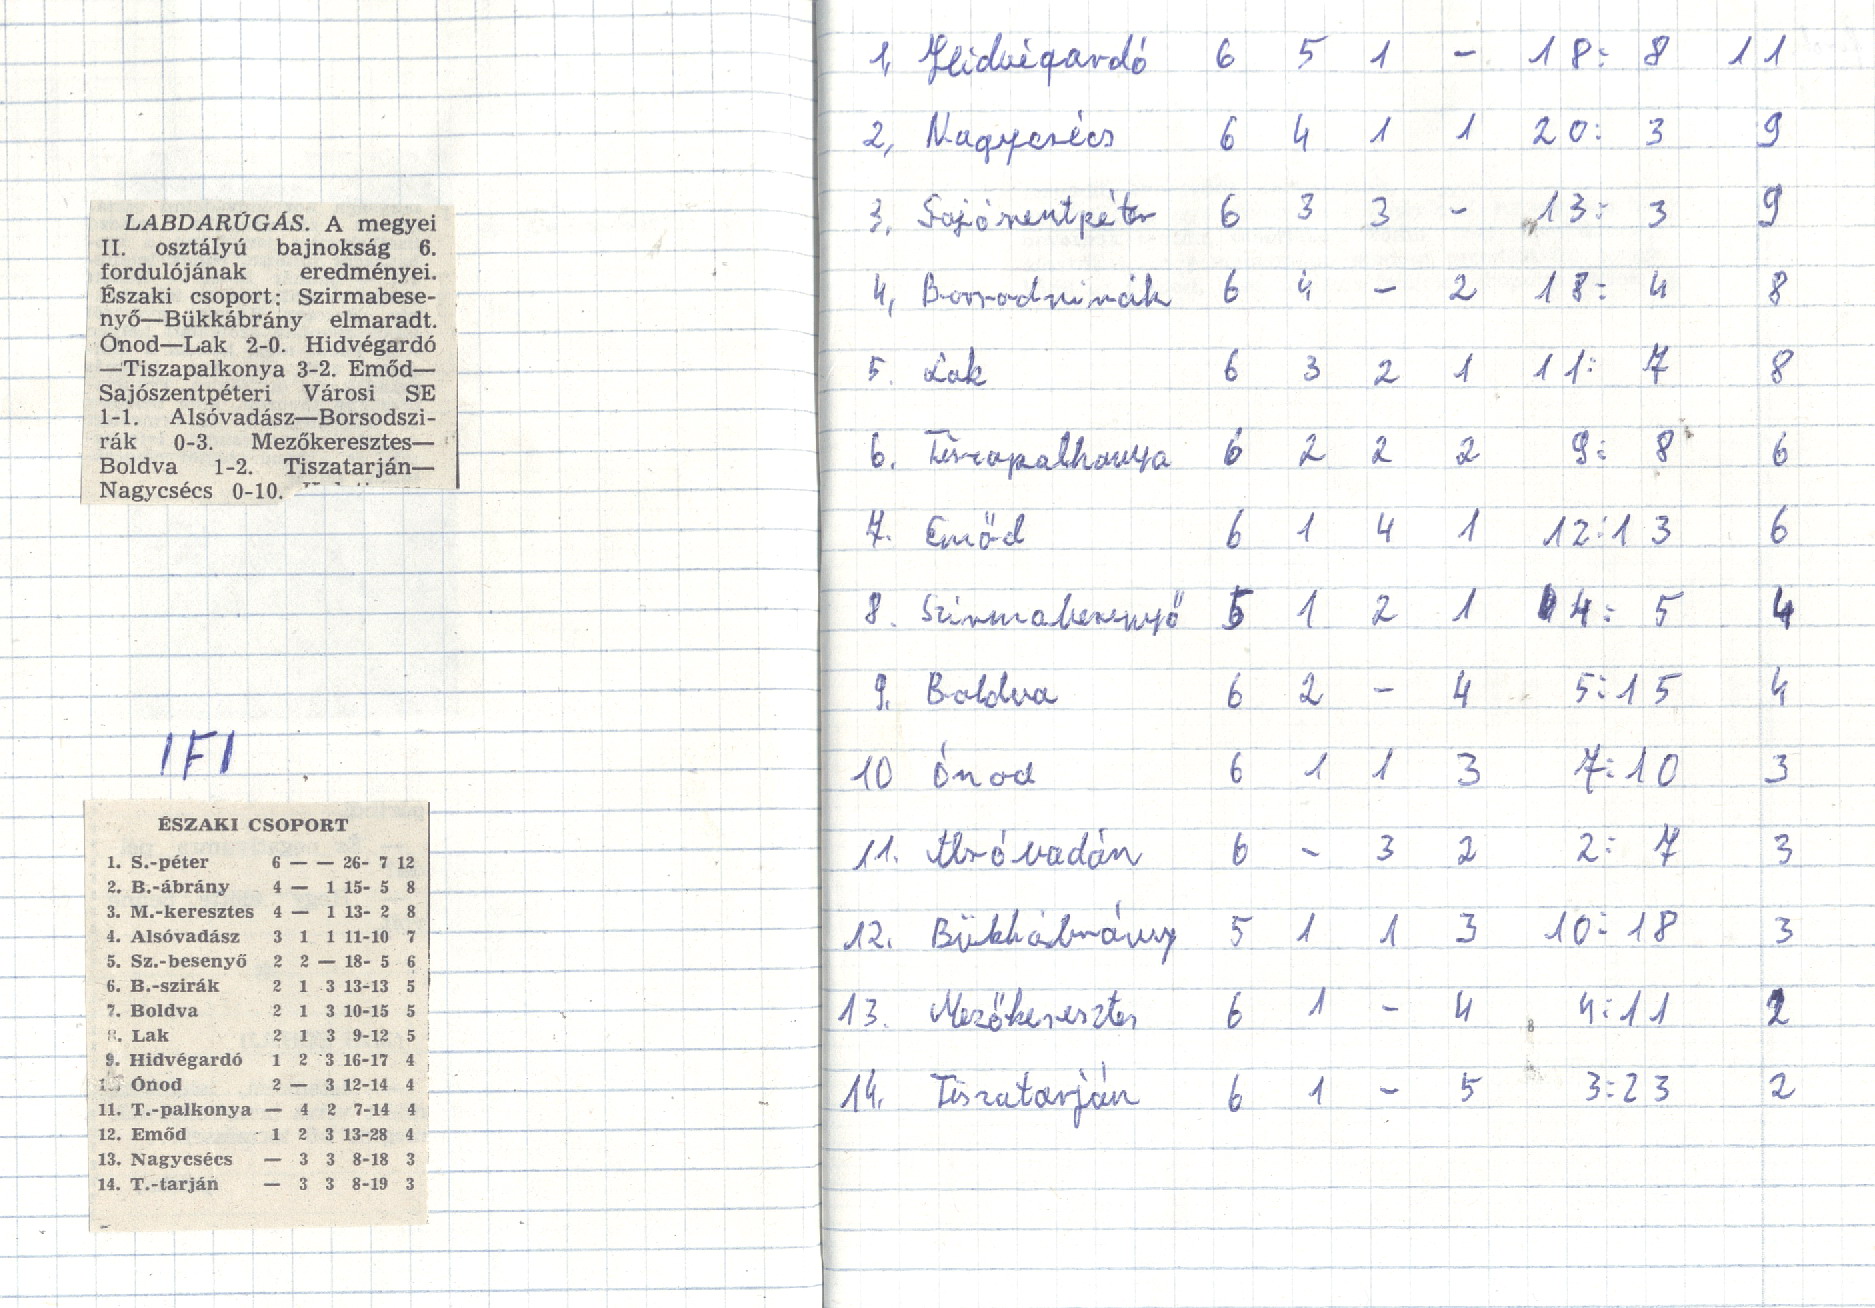 LABDARÚGÁS. A megyei
II. osztályú bajnokság 6.
fordulójának eredményei.
Északi csoport: Szirmabese-
nyő—Bükkábrány elmaradt.
Ónod—Lak 2-0. Hidvégardó
—Tiszapalkonya 3-2. Emőd—
Sajószentpéteri Városi SE
1-1. Alsóvadász—Borsodszi-
rák 0-3. Mezőkeresztes—
Boldva 1-2. Tiszatarján—
Nagycsécs 0-10.
IFI
ÉSZAKI CSOPORT
1. S.-péter 6 — — 26- 7 12
2. B.-ábrány 4 — 1 15- 5 8
3. M.-keresztes 4 — 1 13- 2 8
4. Alsóvadász 3 1 1 11-10 7
5. Sz.-besenyő 2 2 — 18- 5 6
6. B.-szirák 2 1 3 13-13 5
7. Boldva 2 1 3 10-15 5
8. Lak 2 1 3 9-12 5
9. Hidvégardó 1 2 3 16-17 4
10. Ónod 2 — 3 12-14 4
11. T.-palkonya — 4 2 7-14 4
12. Emőd 1 2 3 13-28 4
13. Nagycsécs — 3 3 8-18 3
14. T.-tarján — 3 3 8-19 3
1, Hidvégardó 6 5 1 - 18: 8 11
2, Nagycsécs 6 4 1 1 20: 3 9
3, Sajószentpéter 6 3 3 - 13: 3 9
4, Borsodszirák 6 4 - 2 18: 4 8
5. Lak 6 3 2 1 11: 7 8
6. Tiszapalkonya 6 2 2 2 9: 8 6
7. Emőd 6 1 4 1 12:13 6
8. Szirmabesenyő 5 1 2 1 4: 5 4
9. Boldva 6 2 - 4 5:15 4
10 Ónod 6 1 1 3 7:10 3
11. Alsóvadász 6 - 3 2 2: 7 3
12. Bükkábrány 5 1 1 3 10:18 3
13. Mezőkeresztes 6 1 - 4 4:11 2
14. Tiszatarján 6 1 - 5 3:23 2